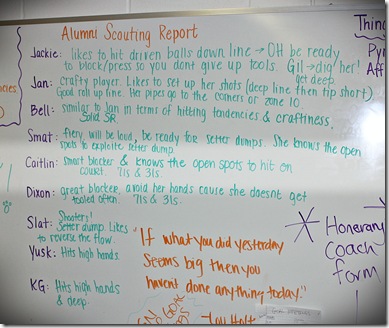 Alumni Scouting Report
Jackie: likes to hit driven balls down line → OH be ready
to block/press so you dont give up tools. Gil → dig her!
get deep.
Jan: crafty player. Likes to set up her shots (deep line then tip short)
Good roll up line. Her pipes go to the corners or zone 10
Bell: similar to Jan in terms of hitting tendencies & craftiness.
Solid SR.
Smat: fiery, will be loud, be ready for setter dumps. She knows the open
spots to exploite setter dump.
Caitlin: smart blocker & knows the open spots to hit on
court. 71s & 31s.
Dixon: great blocker, avoid her hands cause she doesnt get
tooled often. 71s & 31s.
Slat: Shooters!
Setter dump. Likes
to reverse the flow.
Yusk: Hits high hands.
KG: Hits high hands
& deep.
"If what you did yesterday
seems big then you
havent done anything today."
Lou Holt
Thin
Pyr
Aff
Honerary
Coach
form